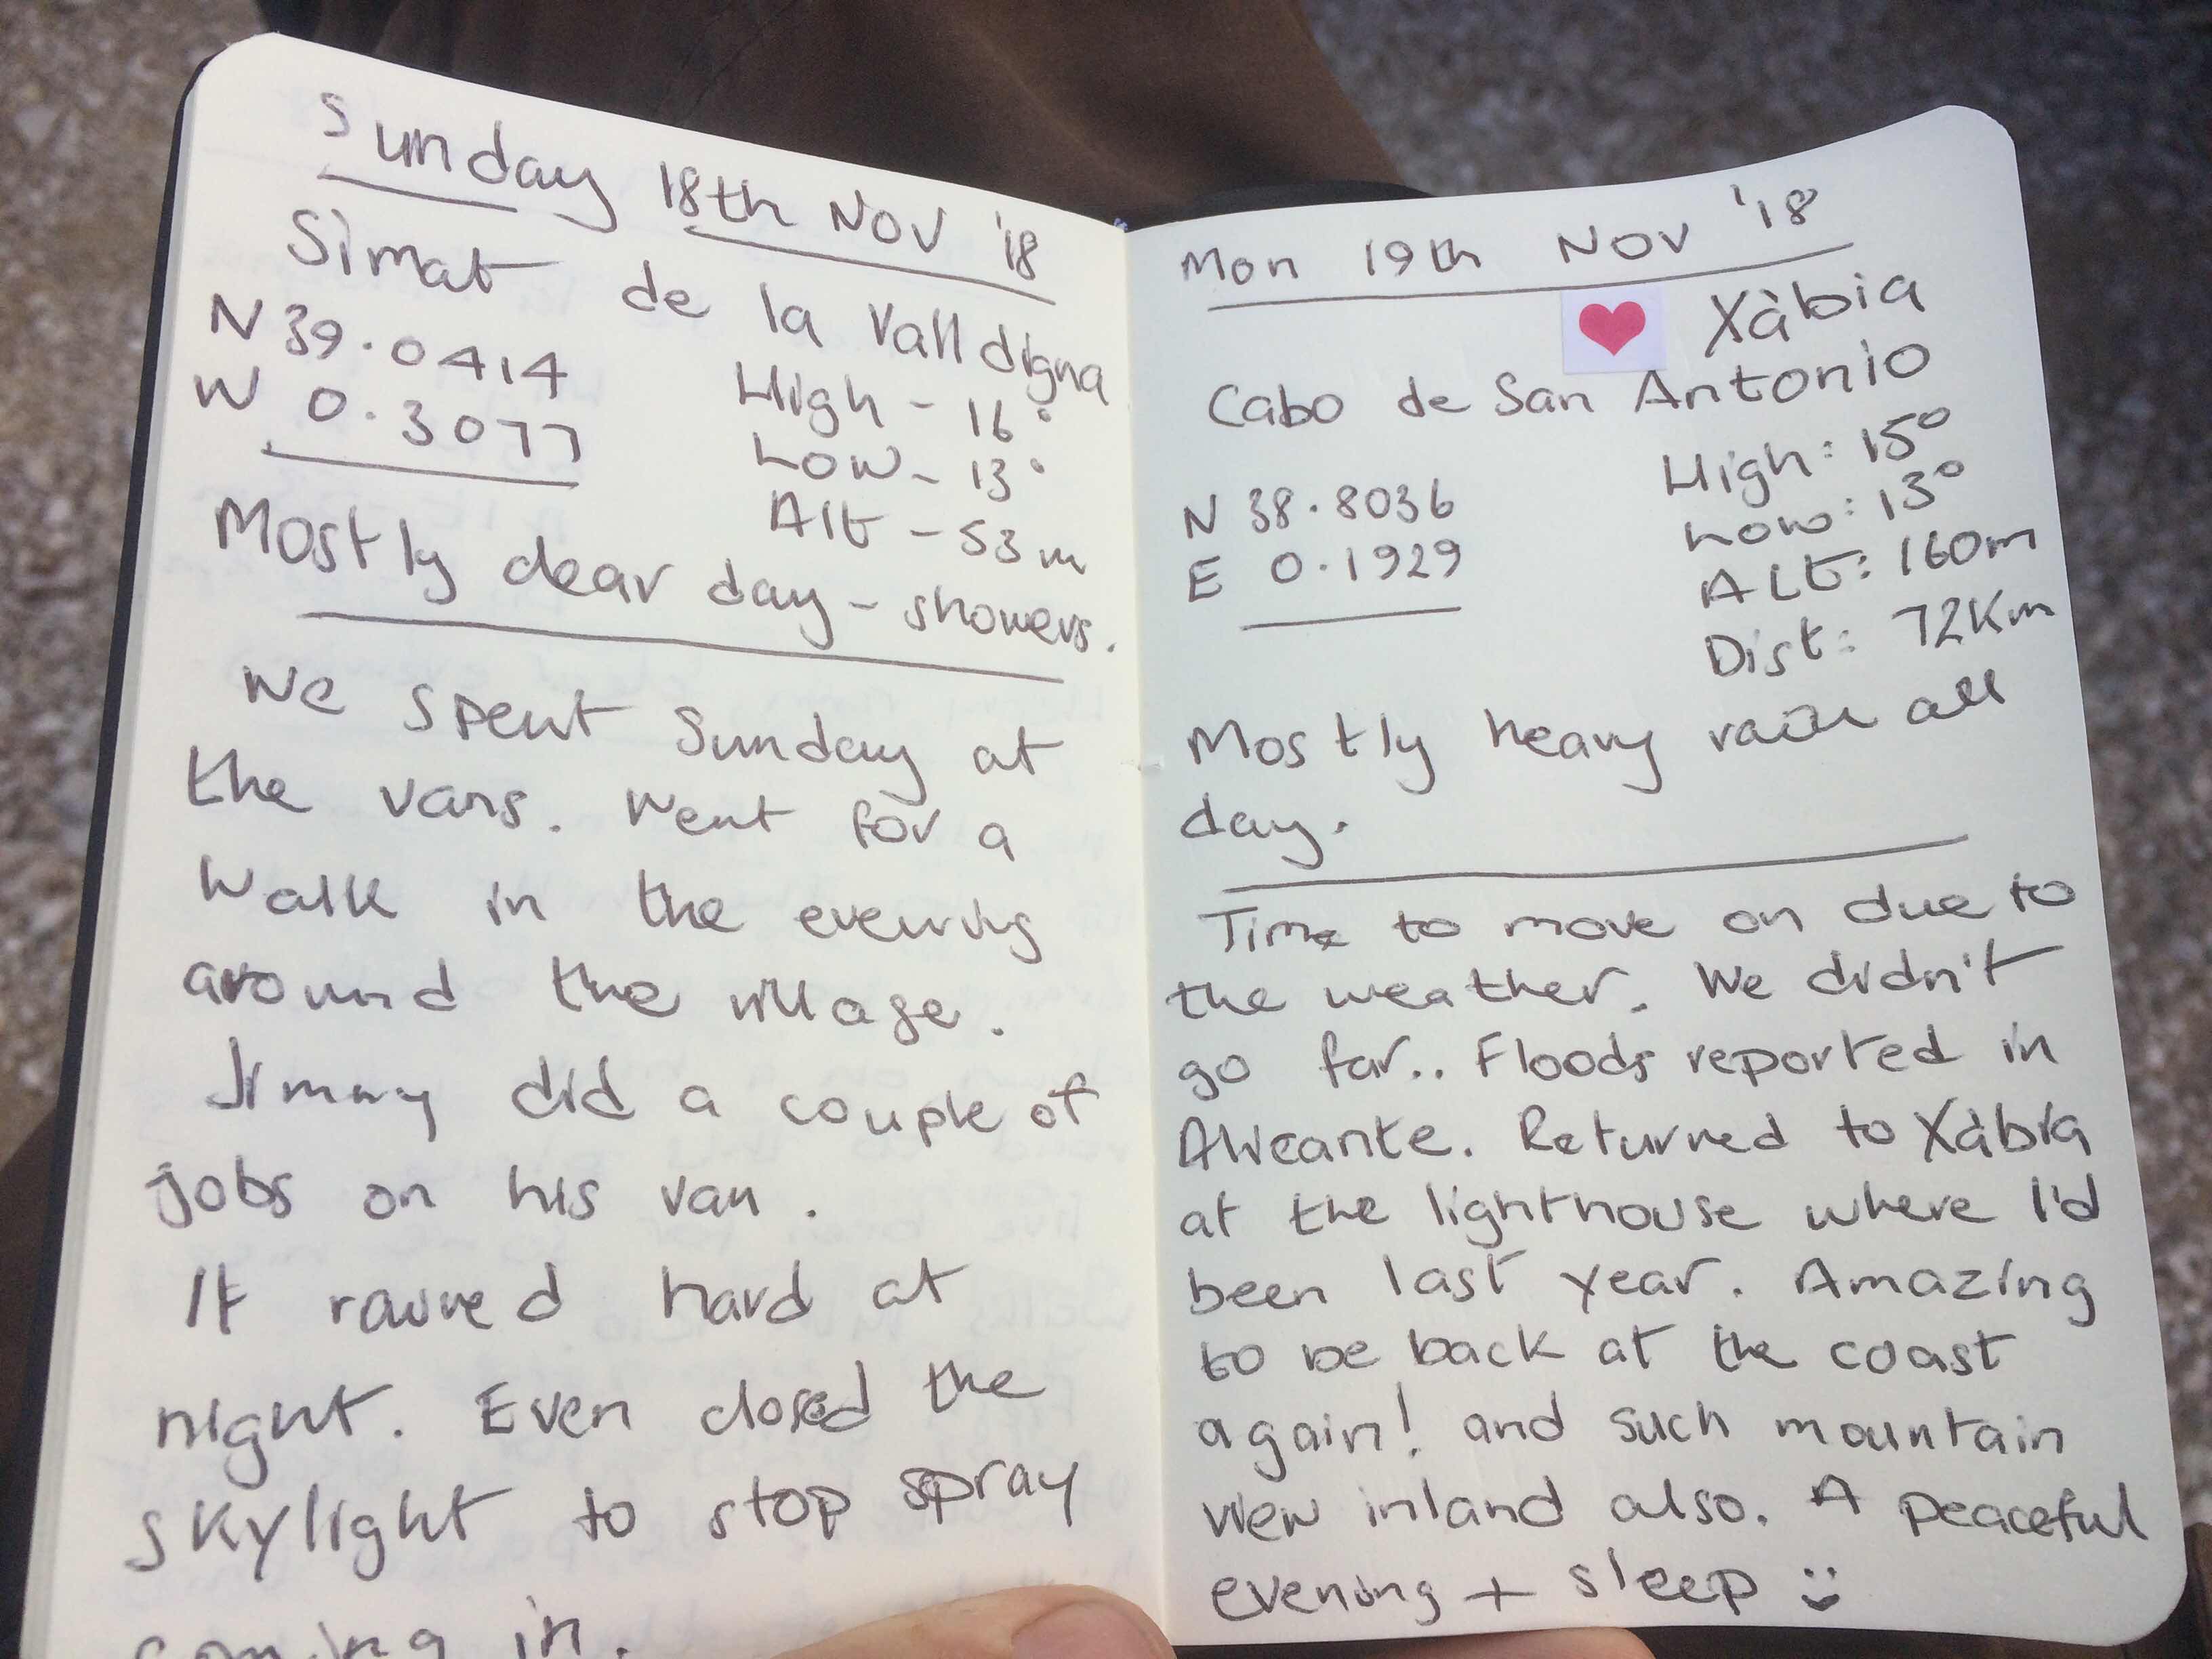 Sunday 18th Nov '18
Simat de la Valldigna
N 39.0414
W 0.3077
High - 16°
Low - 13°
Alt - 53m
Mostly clear day - showers.
We spent Sunday at
the vans. Went for a
walk in the evening
around the village.
Jimmy did a couple of
jobs on his van.
It rained hard at
night. Even closed the
skylight to stop spray
coming in.
Mon 19th Nov '18
Xàbia
Cabo de San Antonio
N 38.8036
E 0.1929
High: 15°
Low: 13°
ALt: 160m
Dist: 72Km
Mostly heavy rain all
day.
Time to move on due to
the weather. We didn't
go far.. Floods reported in
Alicante. Returned to Xàbia
at the lighthouse where I'd
been last year. Amazing
to be back at the coast
again! and such mountain
view inland also. A peaceful
evening + sleep :)